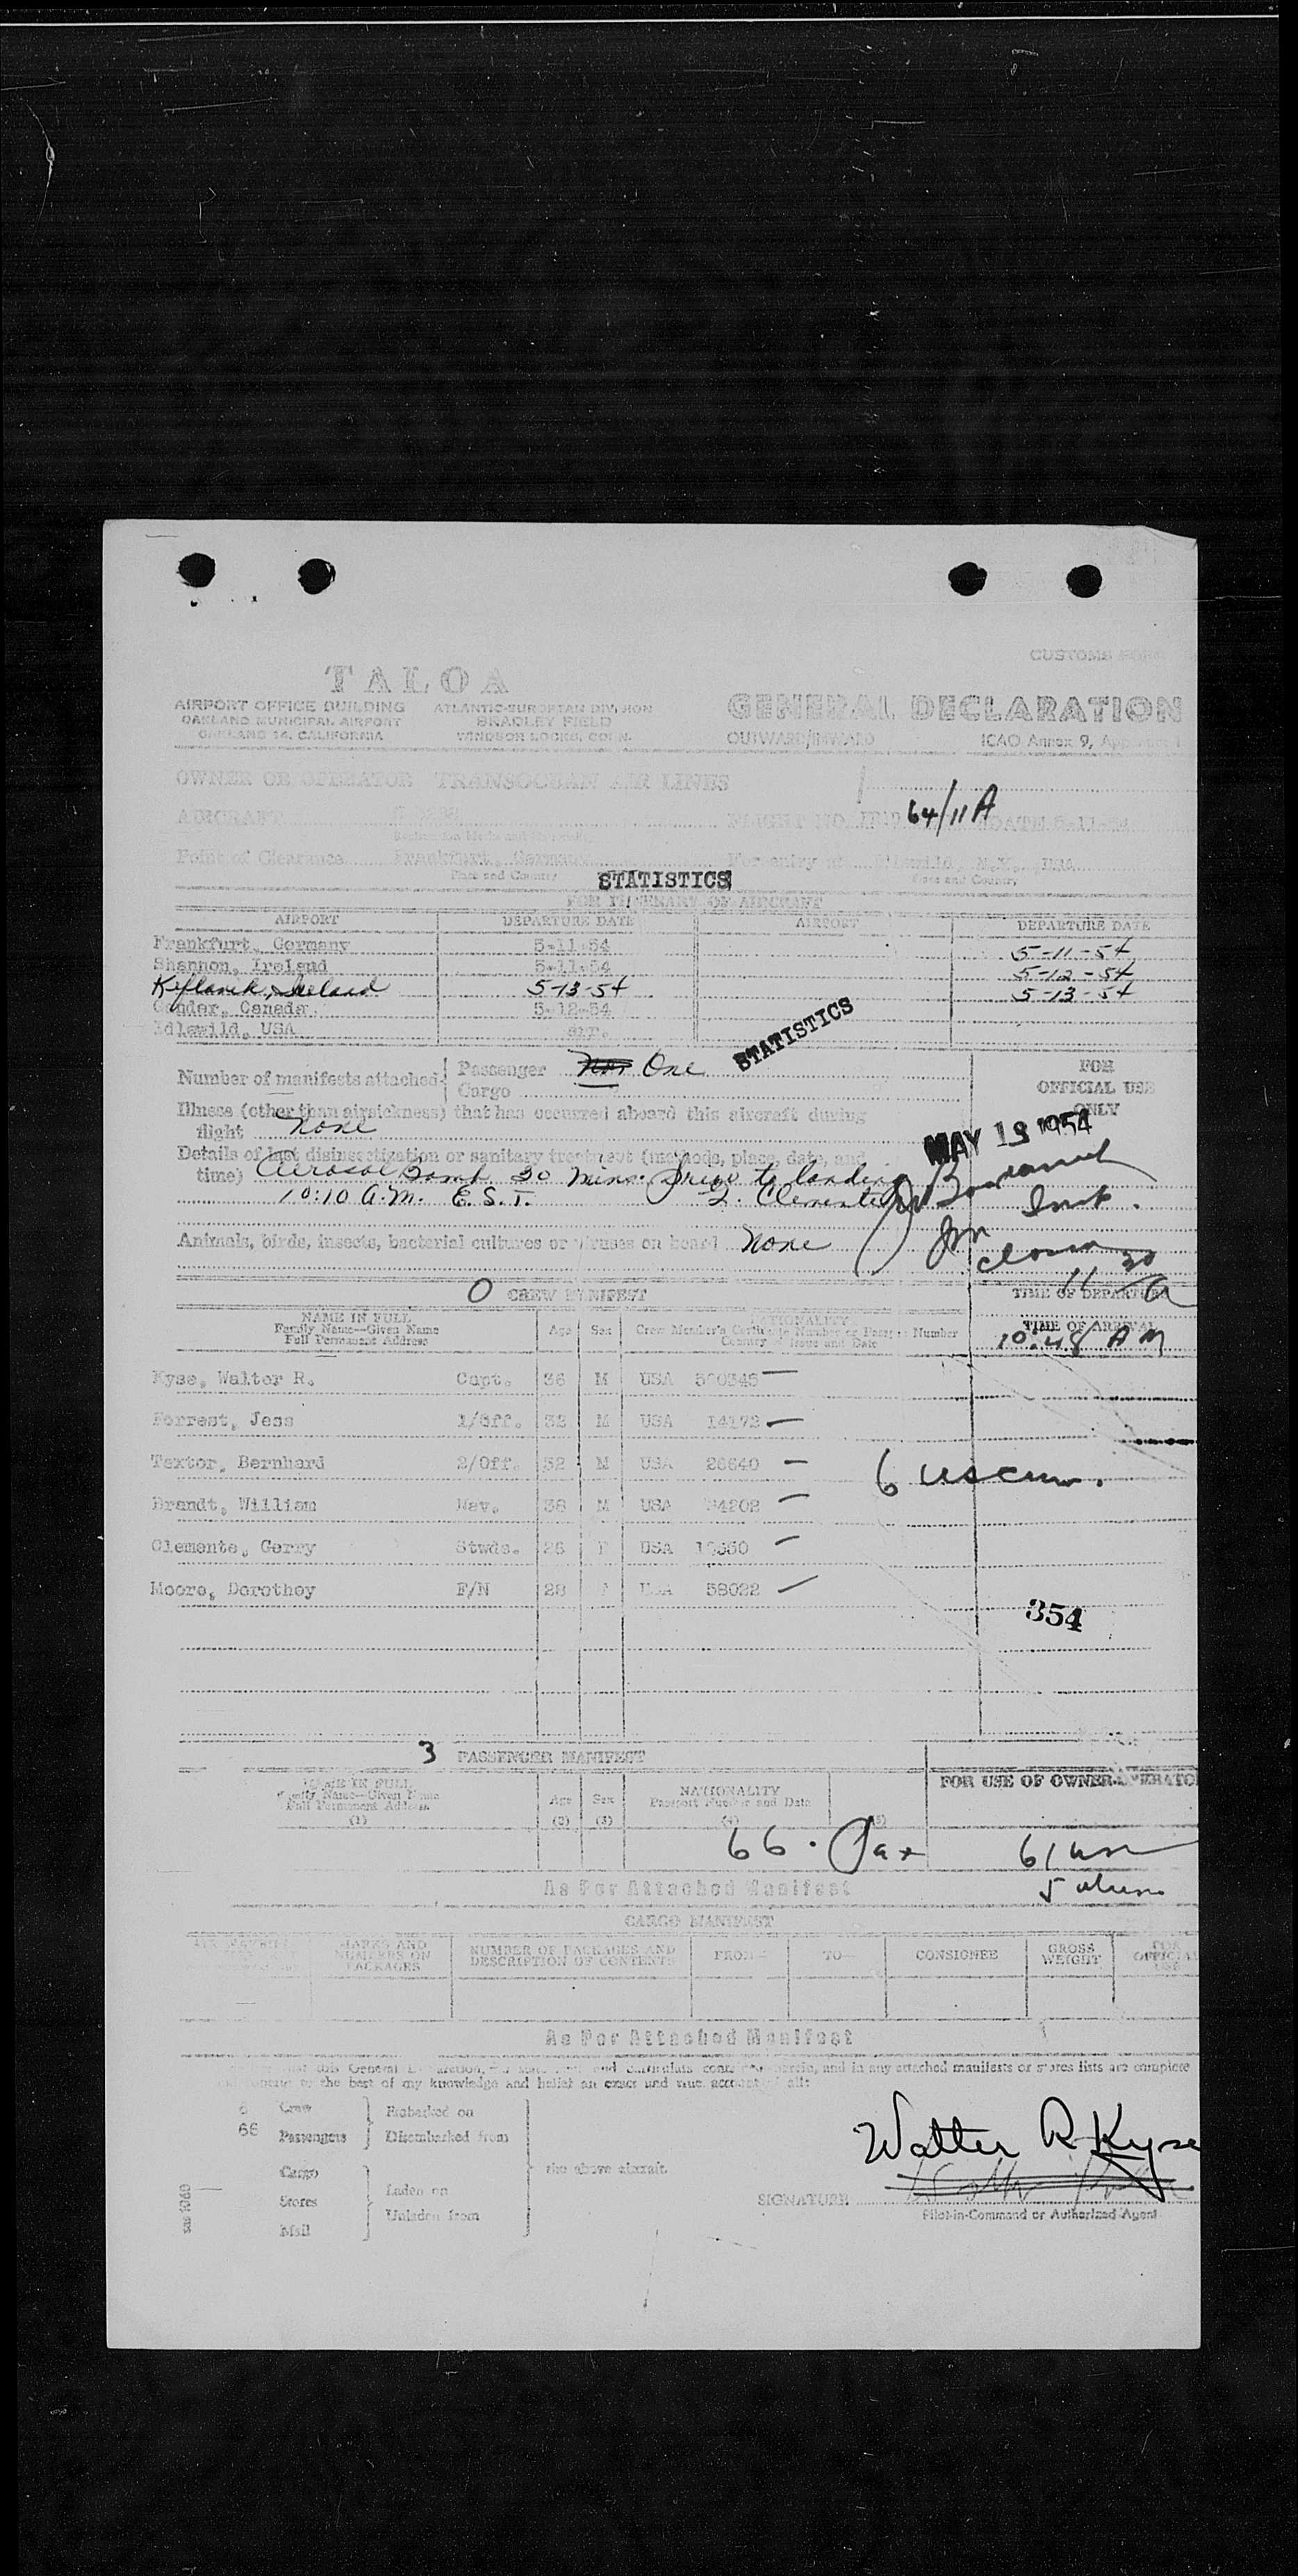 CUSTOMS FORM
TALOA
AIRPORT OFFICE BUILDING
OAKLAND MUNICIPAL AIRPORT
OAKLAND 14, CALIFORNIA
ATLANTIC-EUROPEAN DIVISION
BRADLEY FIELD
WINDSOR LOCKS, CONN.
GENERAL DECLARATION
OUTWARD/INWARD ICAO Annex 9,
OWNER OR OPERATOR TRANSOCEAN AIR LINES
AIRCRAFT FLIGHT NO. 64/11A DATE 5-11-54
Point of Clearance Frankfurt, Germany For entry at Idlewild, N.Y. USA
Place and Country Place and Country
STATISTICS
FOR ITINERARY OF AIRCRAFT
AIRPORT DEPARTURE DATE AIRPORT DEPARTURE DATE
Frankfurt, Germany 5-11-54 5-11-54
Shannon, Ireland 5-11-54 5-12-54
Keflavik, Iceland 5-13-54 5-13-54
Gander, Canada 5-12-54
Idlewild, USA arr.
STATISTICS
Number of manifests attached Passenger One
Cargo
FOR OFFICIAL USE ONLY
Illness (other than airsickness) that has occurred aboard this aircraft during
flight None
MAY 13 1954
Details of last disinsectization or sanitary treatment (methods, place, date, and
time) Aerosol Bomb 30 mins. prior to landing
10:10 A.M. E.S.T. Clemente
Animals, birds, insects, bacterial cultures or viruses on board None
0 CREW MANIFEST
TIME OF DEPARTURE
NAME IN FULL
Family Name—Given Name
Full Permanent Address
Age Sex NATIONALITY
TIME OF ARRIVAL
10:48 AM
Kyse, Walter R. Capt. 36 M USA 500346
Forrest, Jess 1/Off. 32 M USA 14172
Textor, Bernhard 2/Off. 32 M USA 26640
Brandt, William Nav. 38 M USA
Clemente, Gerry Stwds. 26 F USA
Moore, Dorothey F/N 28 F USA 58022
6 uscrew.
354
3 PASSENGER MANIFEST
FOR USE OF OWNER-OPERATOR
NAME IN FULL
Family Name—Given Name
Full Permanent Address
(1)
Age
(2)
Sex
(3)
NATIONALITY
Passport Number and Date
(4)
(5)
66 · Pax
As Per Attached Manifest
CARGO MANIFEST
MARKS AND NUMBERS ON PACKAGES
NUMBER OF PACKAGES AND DESCRIPTION OF CONTENTS
FROM— TO— CONSIGNEE GROSS WEIGHT FOR OFFICIAL USE
As Per Attached Manifest
this General Declaration, and particulars contained herein, and in any attached manifests or stores lists are complete
to the best of my knowledge and belief an exact and true account of all:
6 Crew
66 Passengers
Embarked on
Disembarked from
the above aircraft.
Cargo
Stores
Mail
Laden on
Unladen from
Walter R Kyse
SIGNATURE
Pilot-in-Command or Authorized Agent